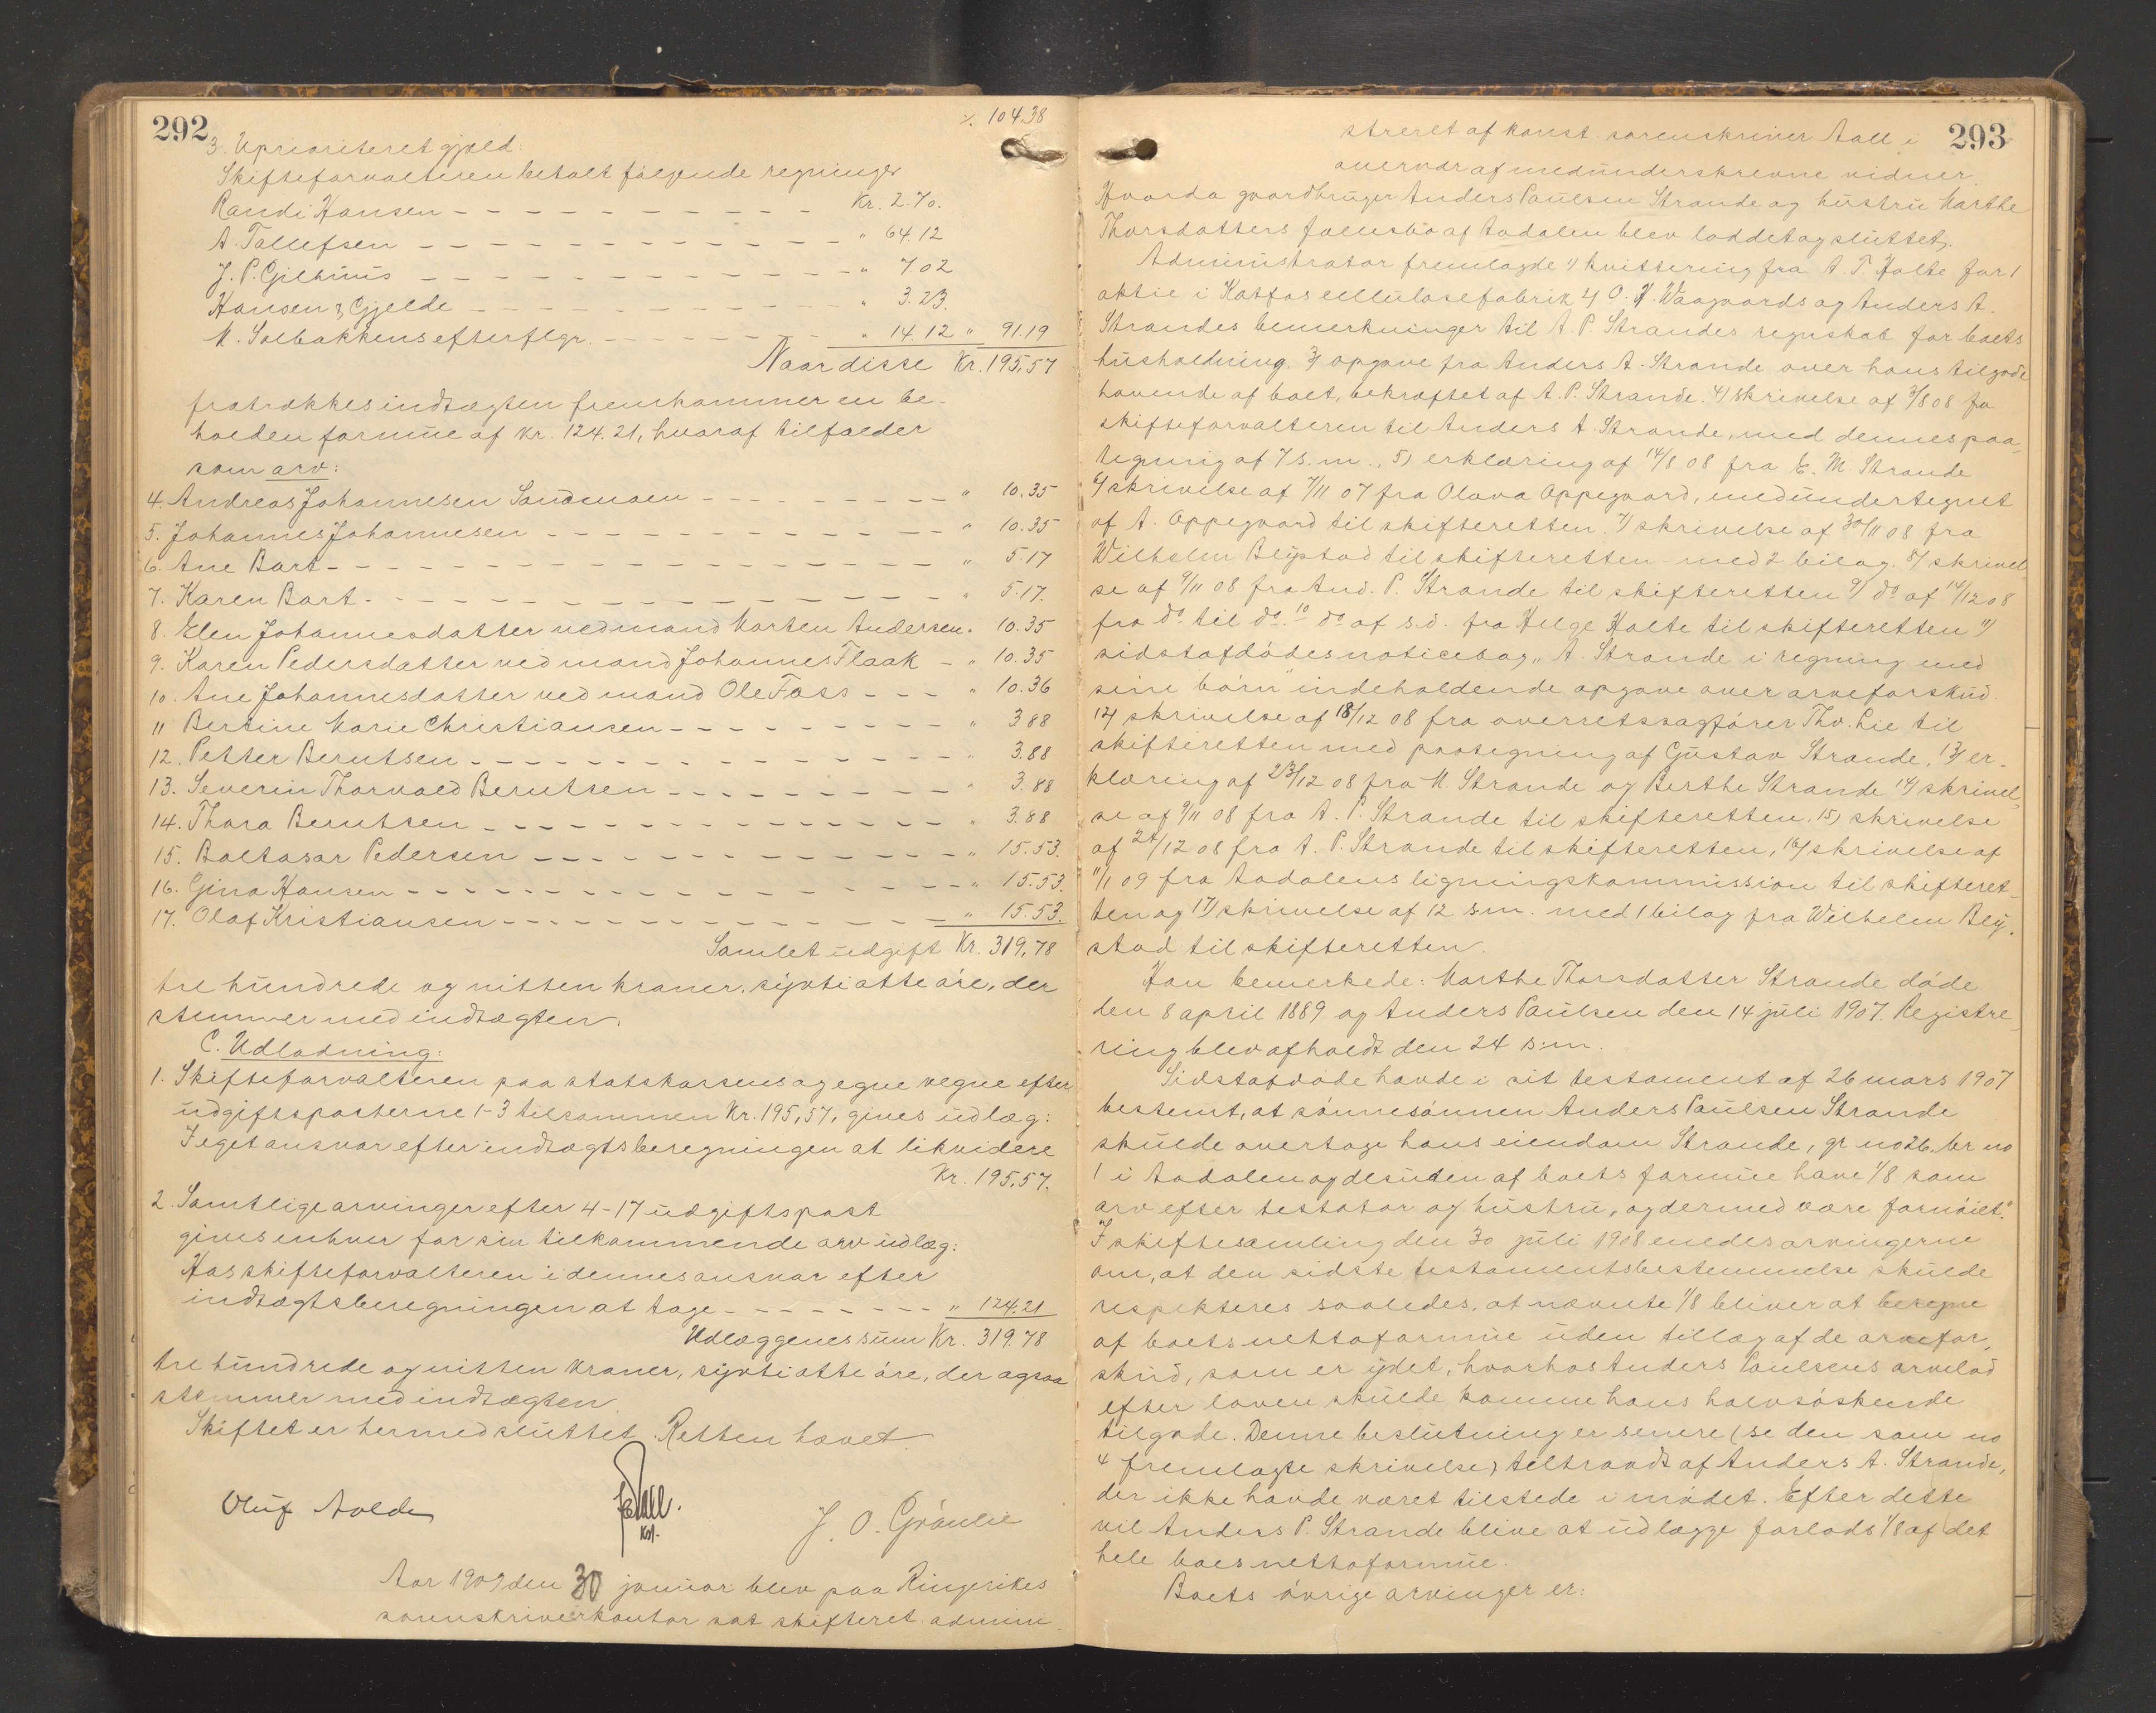 292
⁒ 104.38
3. Uprioriteret gjæld:
Skifteforvalteren betalt følgende regninger
Randi Hansen — — — Kr. 2.70.
A. Tollefsen — — — " 64.12
J. P. Gjilhuus — — — " 7 02
Hansen & Gjelde — — — " 3.23.
M. Solbakkens efterflgr. — — — " 14.12 " 91.19
Naar disse Kr. 195,57
fratrækkes indtægten fremkommer en be-
holden formue af Kr. 124.21, hvoraf tilfalder
som arv:
4. Andreas Johannesen Sandmoen — — — " 10.35
5. Johannes Johannesen — — — " 10.35
6. Ane Bart — — — " 5.17
7. Karen Bart — — — " 5.17.
8. Elen Johannesdatter ved mand Morten Andersen " 10.35
9. Karen Pedersdatter ved mand Johannes Flaak — " 10.35
10. Ane Johannesdatter ved mand Ole Foss — — — " 10.36
11 Bertine Marie Christiansen — — — " 3 88
12. Petter Berntsen — — — " 3.88
13. Severin Thorvald Berntsen — — — " 3.88
14. Thora Berntsen — — — " 3.88
15. Baltasar Pedersen — — — " 15.53.
16. Gina Hansen — — — " 15.53.
17. Olaf Kristiansen — — — " 15.53.
Samlet udgift Kr. 319,78
tre hundrede og nitten kroner, sytti otte øre, der
stemmer med indtægten.
C. Udlodning:
1. Skifteforvalteren paa statskassens og egne vegne efter
udgiftsposterne 1-3 tilsammen Kr. 195,57, gives udlæg:
I eget ansvar efter indtægtsberegningen at likvidere
Kr. 195,57.
2. Samtlige arvinger efter 4-17 udgiftspost
gives enhver for sin tilkommende arv udlæg:
Hos skifteforvalteren i dennes ansvar efter
indtægtsberegningen at tage — — — " 124.21
Udlæggenes sum Kr. 319.78
tre hundrede og nitten kroner, sytti otte øre, der ogsaa
stemmer med indtægten.
Skiftet er hermed sluttet. Retten hævet.
Oluf Aolde
Aall.
kst.
J. O. Grønlie
Aar 1909 den 30 januar blev paa Ringerikes
sorenskriverkontor sat skifteret admini
293
streret af konst. sorenskriver Aall i
overvær af medunderskrevne vidner.
Hvorda gaardbruger Anders Paulsen Strande og hustru Marthe
Thorsdatters fællesbo af Aadalen blev loddet og sluttet.
Administrator fremlagde 1) kvittering fra A. T. Holte for 1
aktie i Katfos cellulosefabrik 4) O. H. Waagaards og Anders A.
Strandes bemerkninger til A. P. Strandes regnskab for boets
husholdning. 3) opgave fra Anders A. Strande over hans tilgode
havende af boet, bekræftet af A. P. Strande. 4) skrivelse af 3/8 08 fra
skifteforvalteren til Anders A. Strande, med dennes paa
tegning af 7 s.m., 5) erklæring af 14/8 08 fra E. M. Strande
6) skrivelse af 7/11 07 fra Olava Oppegaard, medundertegnet
af A. Oppegaard til skifteretten. 7) skrivelse af 30/11 08 fra
Wilhelm Blystad til skifteretten med 2 bilag. 8) skrivel
se af 9/11 08 fra And. P. Strande til skifteretten 9) do af 14/12 08
fra do til do. 10 do af s.d. fra Helge Holte til skifteretten 11)
sidstafdødes noticebog „A. Strande i regning med
sine børn" indeholdende opgave over arveforskud.
12) skrivelse af 18/12 08 fra overretssagfører Thv. Lie til
skifteretten med paategning af Gustav Strande, 13) er-
klæring af 23/12 08 fra M. Strande og Berthe Strande 14) skrivel
se af 9/11 08 fra A. P. Strande til skifteretten. 15) skrivelse
af 24/12 08 fra A. P. Strande til skifteretten, 16) skrivelse af
11/1 09 fra Aadalens ligningskommission til skifteret
ten og 17) skrivelse af 12 s.m. med 1 bilag fra Wilhelm Bly.
stad til skifteretten.
Han bemerkede: Marthe Thorsdatter Strande døde
den 8 april 1889 og Anders Paulsen den 14 juli 1907. Registre
ring blev afholdt den 24 s.m.
Sidstafdøde havde i sit testament af 26 mars 1907
bestemt, at sønnesønnen Anders Paulsen Strande
skulde overtage hans eiendom Strande, gr no 26, br no
1 i Aadalen og desuden af boets formue have 1/8 som
arv efter testator og hustru, og dermed være fornøiet."
I skiftesamling den 30 juli 1908 enedes arvingerne
om, at den sidste testamentsbestemmelse skulde
respekteres saaledes, at nævnte 1/8 bliver at beregne
af boets nettoformue uden tillæg af de arvefor-
skud, som er ydet, hvorhos Anders Paulsens arvelod
efter loven skulde komme hans halvsøskende
tilgode. Denne beslutning er senere (se den som no
4 fremlagte skrivelse) tiltraadt af Anders A. Strande,
der ikke havde været tilstede i mødet. Efter dette
vil Anders P. Strande blive at udlægge forlods 1/8 af det
hele boes nettoformue.
Boets øvrige arvinger er: